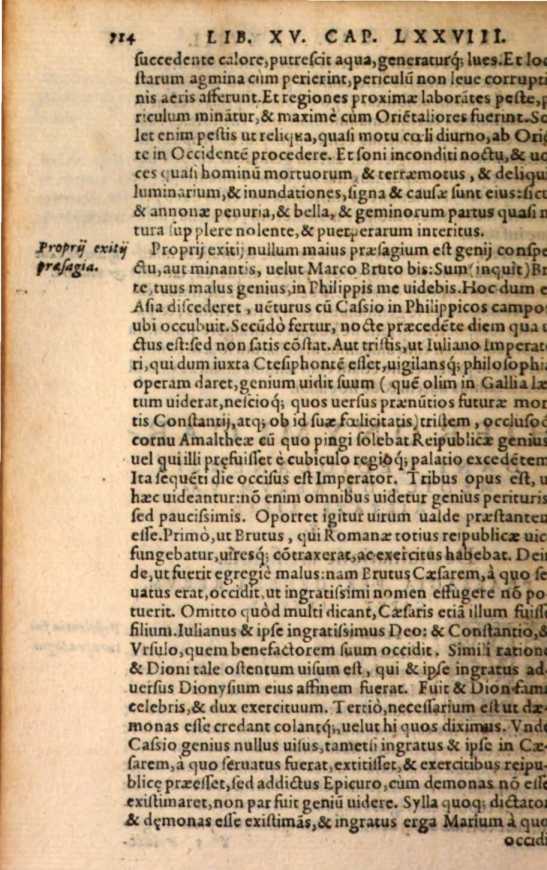 714 LIB. XV. CAP. LXXVIII.
succedente calore, putrescit aqua, generaturq́; lues. Et lo
starum agmina cùm perierint, periculū non leue corrupti
nis aeris afferunt. Et regiones proximæ laborātes peste, p
riculum minātur, & maximè cùm Oriētaliores fuerint. So
let enim pestis ut reliqua, quasi motu cœli diurno, ab Ori
te in Occidentē procedere. Et soni inconditi noctu, & uo
ces quasi hominū mortuorum, & terræmotus, & deliqui
luminarium, & inundationes, signa & causæ sunt eius: sicu
& annonæ penuria, & bella, & geminorum partus quasi n
tura supplere nolente, & puerperarum interitus.
Proprij exitij Proprij exitij nullum maius præsagium est genij conspe
præsagia. ctu, aut minantis, uelut Marco Bruto bis: Sum (inquit) Br
te, tuus malus genius, in Philippis me uidebis. Hoc dum e
Asia discederet, uēturus cū Cassio in Philippicos campo
ubi occubuit. Secūdò fertur, nocte præcedēte diem qua u
ctus est: sed non satis cōstat. Aut tristis, ut Iuliano Imperato
ri, qui dum iuxta Ctesiphontē esset, uigilansq́; philosophiæ
operam daret, genium uidit suum ( quē olim in Gallia læ
tum uiderat, nescioq́; quos uersus prænūtios futuræ mor
tis Constantij, atq; ob id suæ fœlicitatis) tristem, occlusoq́
cornu Amaltheæ cū quo pingi solebat Reipublicæ genius
uel qui illi pręfuisset è cubiculo regioq́; palatio excedētem
Ita sequēti die occisus est Imperator. Tribus opus est, u
hæc uideantur: nō enim omnibus uidetur genius perituris
sed paucissimis. Oportet igitur uirum ualde præstantem
esse. Primò, ut Brutus, qui Romanæ totius reipublicæ uice
fungebatur, uiresq́; cōtraxerat, ac exercitus habebat. Dein
de, ut fuerit egregiè malus: nam Brutus Cæsarem, à quo se
uatus erat, occidit, ut ingratissimi nomen effugere nō po
tuerit. Omitto quòd multi dicant, Cæsaris etiā illum fuisse
filium. Iulianus & ipse ingratissimus Deo: & Constantio, &
Vrsulo, quem benefactorem suum occidit. Simili ratione
& Dioni tale ostentum uisum est, qui & ipse ingratus ad
uersus Dionysium eius affinem fuerat. Fuit & Dion fama
celebris, & dux exercituum. Tertiò, necessarium est ut dæ-
monas esse credant colantq́;, uelut hi quos diximus. Vnde
Cassio genius nullus uisus, tametsi ingratus & ipse in Cæ-
sarem, à quo seruatus fuerat, extitisset, & exercitibus reipu-
blicę præesset, sed addictus Epicuro, cùm demonas nō esse
existimaret, non par fuit geniū uidere. Sylla quoq; dictator
& dęmonas esse existimās, & ingratus erga Marium à quo
occidi